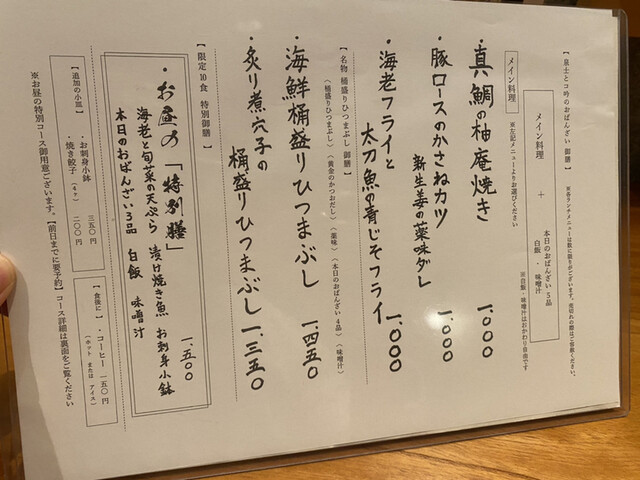 【 泉士とコ吟のおばんざい 御膳 】
※各ランチメニューは数に限りがございます。売切れの際はご容赦ください。
メイン料理 ＋ 本日のおばんざい5品
白飯 ・ 味噌汁
※白飯・味噌汁はおかわり自由です
メイン料理
※左記メニューよりお選びください
・真鯛の柚庵焼き 1,000
・豚ロースのかさねカツ
新生姜の薬味ダレ 1,000
・海老フライと
太刀魚の青じそフライ 1,000
【 名物 桶盛りひつまぶし 御膳 】
（桶盛りひつまぶし）（黄金のかつおだし）（薬味）（本日のおばんざい4品）（味噌汁）
・海鮮桶盛りひつまぶし 1,450
・炙り煮穴子の
桶盛りひつまぶし 1,350
【 限定10食 特別御膳 】
・お昼の「特別膳」 1,500
海老と旬菜の天ぷら 漬け焼き魚 お刺身小鉢
本日のおばんざい3品 白飯 味噌汁
【 追加の小皿 】
・お刺身小鉢 三五〇円
・焼き餃子（4ヶ） 二〇〇円
【 食後に 】
・コーヒー 一五〇円
（ホット または アイス）
※お昼の特別コース御用意ございます。【前日までに要予約】コース詳細は裏面をご覧ください